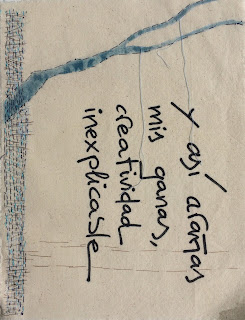 y así arañas
mis ganas,
creatividad
inexplicable